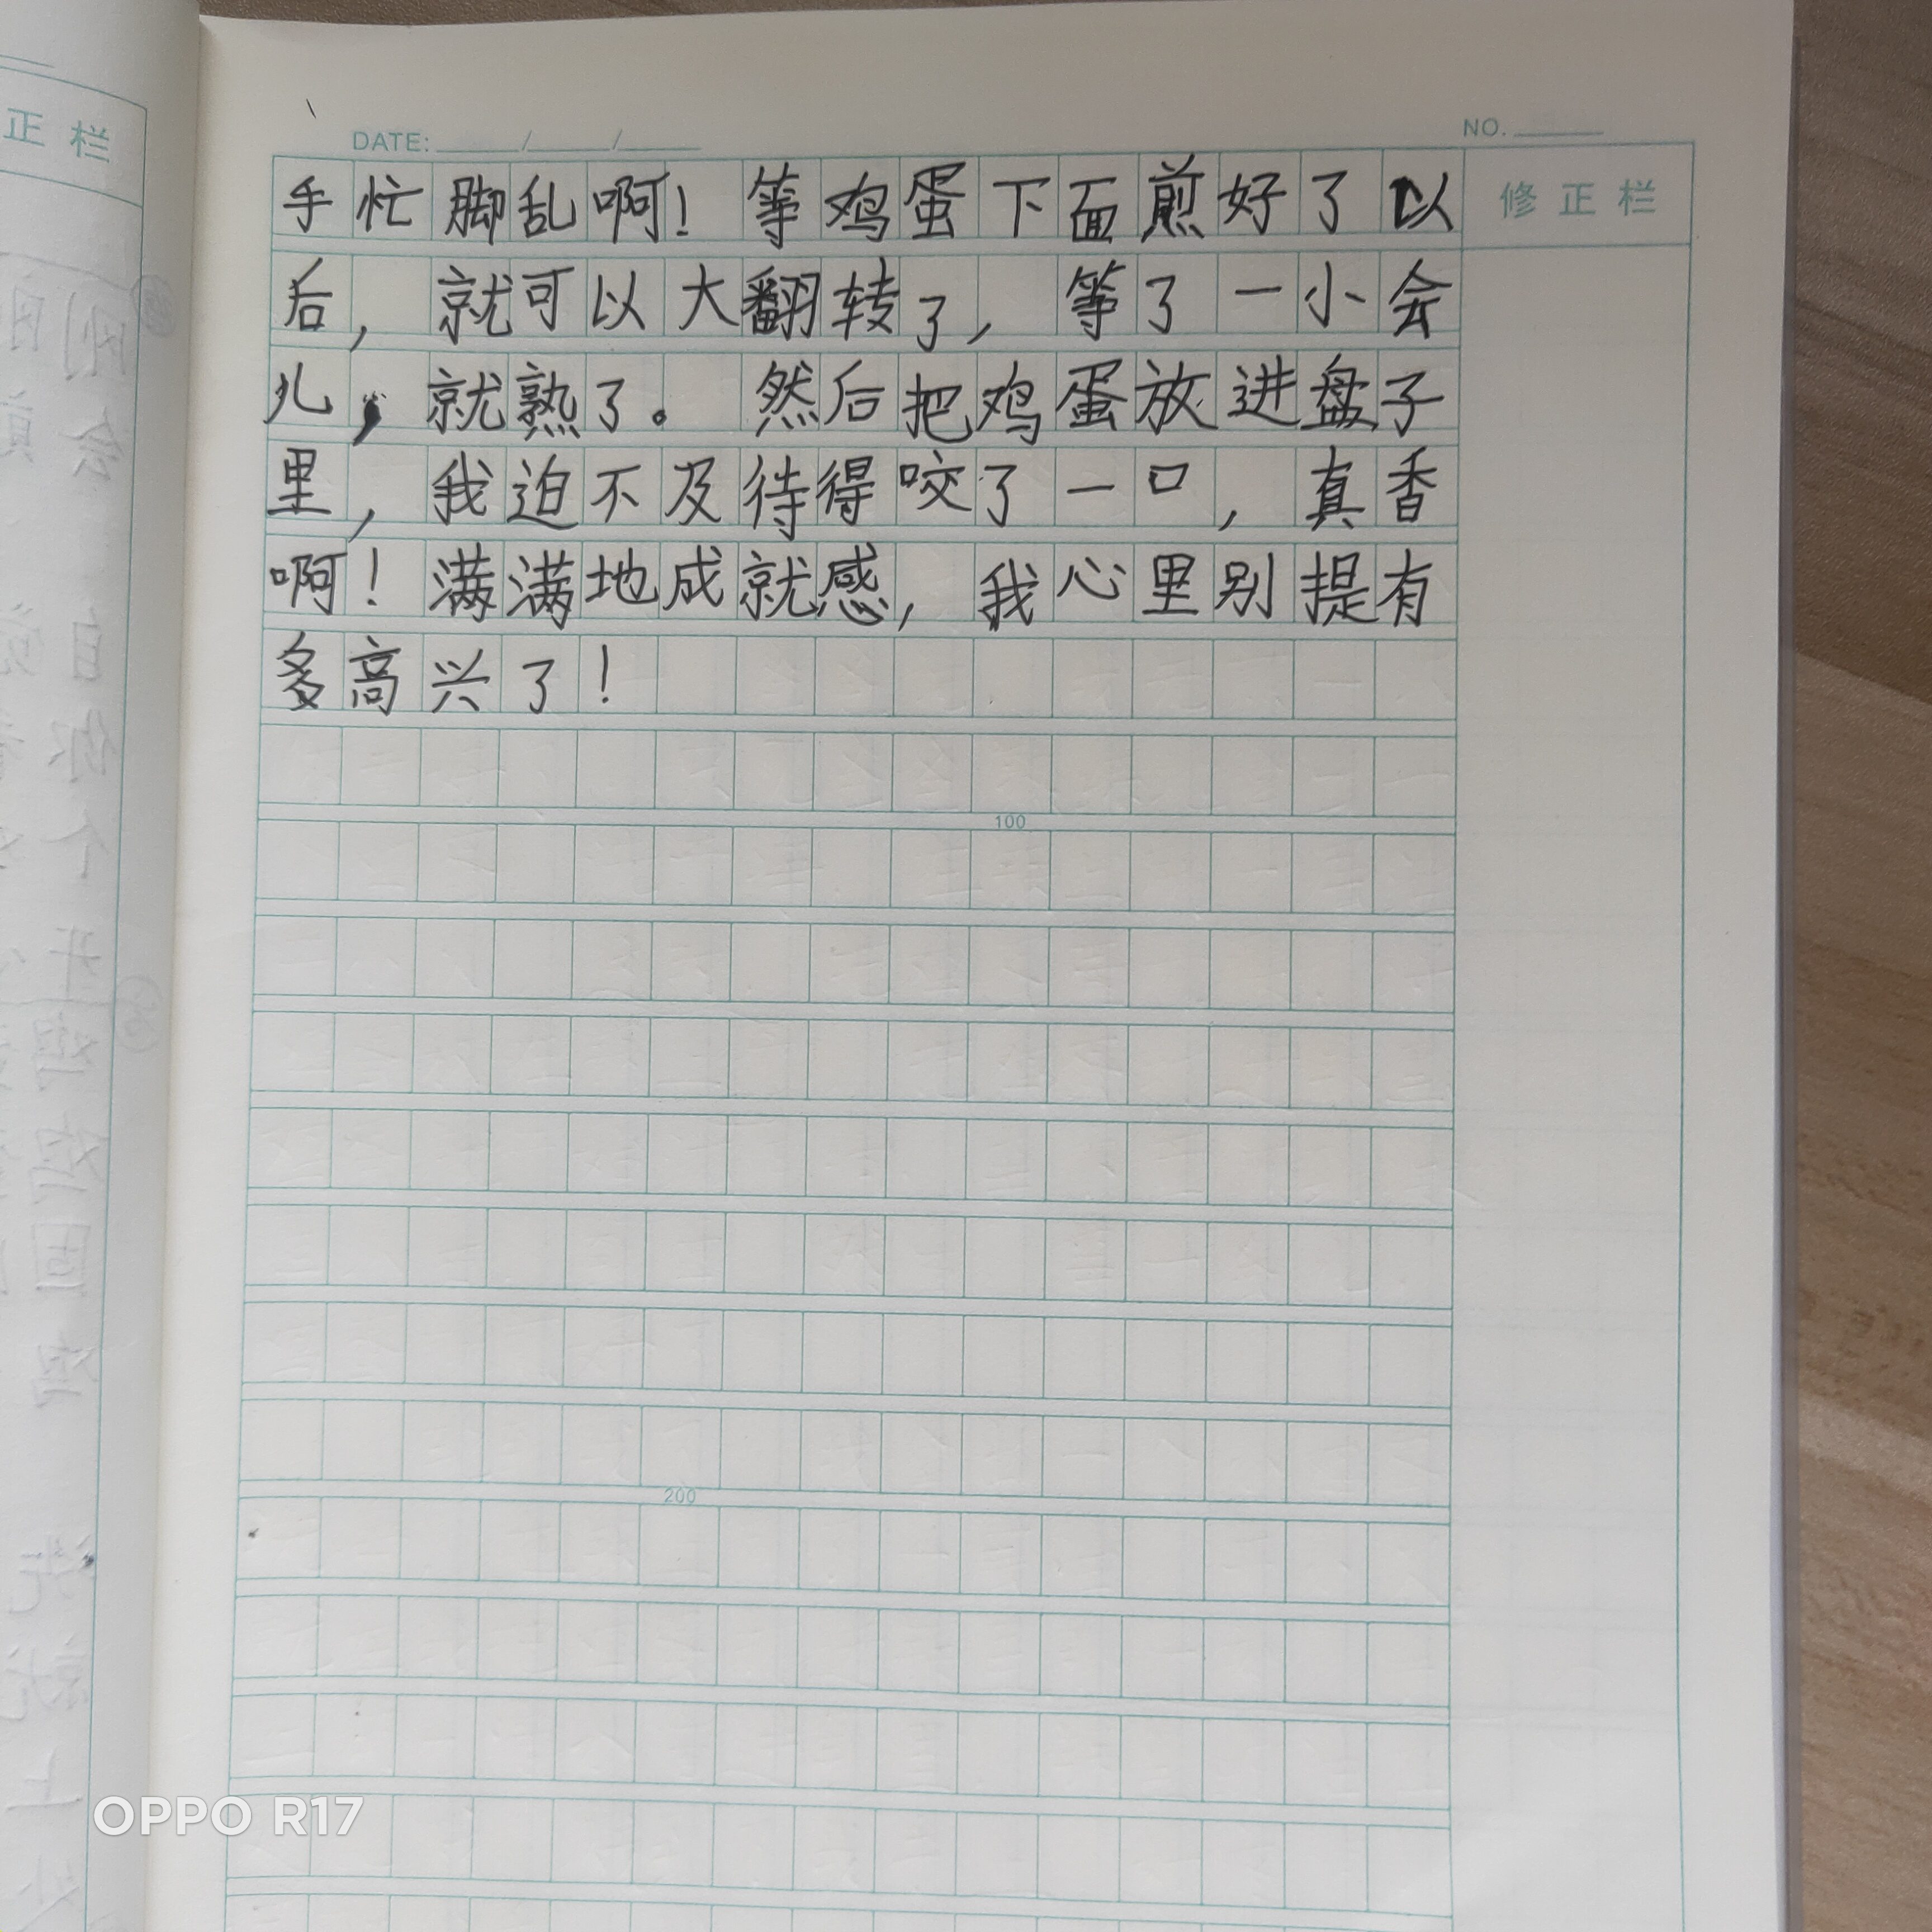 正栏
DATE: / /
NO.
修正栏
手忙脚乱啊!等鸡蛋下面煎好了以
后,就可以大翻转了,等了一小会
儿,就熟了。然后把鸡蛋放进盘子
里,我迫不及待得咬了一口,真香
啊!满满地成就感,我心里别提有
多高兴了!
100
200
OPPO R17